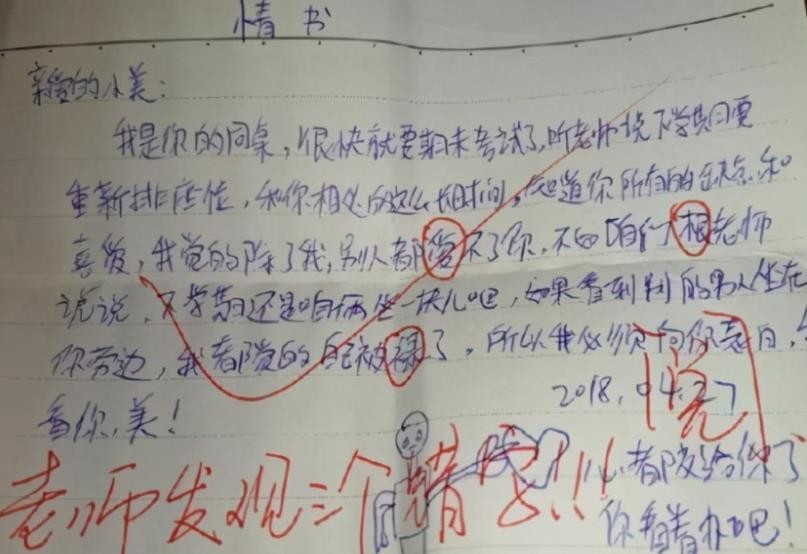 情书
亲爱的小美：
我是你的同桌，很快就要期末考试了，听老师说下学期要
重新排座位，和你相处的这么长时间，知道你所有的缺点和
喜爱，我觉的除了我，别人都爱不了你，不如咱们相老师
说说，下学期还是咱俩坐一块儿吧，如果看到别的男人坐在
你旁边，我都觉的自己被禄了，所以我必须向你表白，
看你，美！
2018.04.27
老师发现三个错字!!!
心都交给你了
你看着办吧！